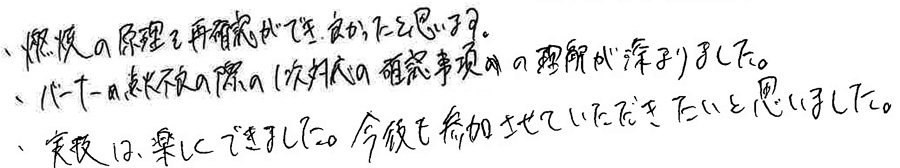 ・燃焼の原理を再確認ができ、良かったと思います。
・バーナーの点火不良の際の1次対応の確認事項の理解が深まりました。
・実技は、楽しくできました。今後も参加させていただきたいと思いました。